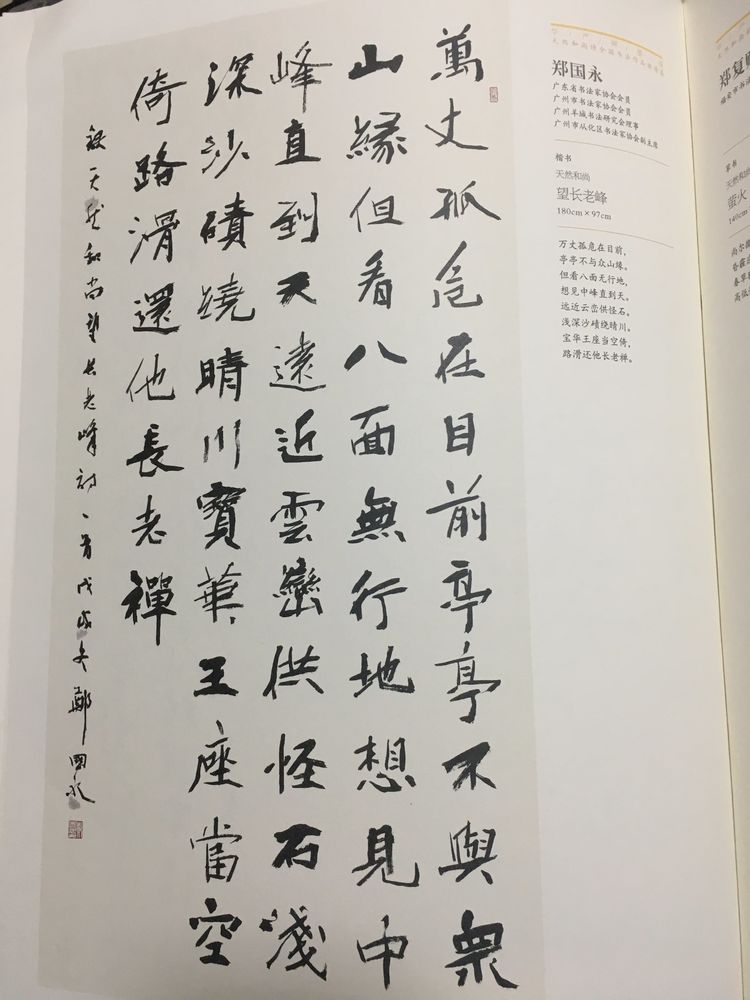 萬丈孤危在目前亭亭不與衆
山緣但看八面無行地想見中
峰直到天遠近雲巒供怪石淺
深沙磧繞晴川寶華王座當空
倚路滑還他長老禪
錄天然和尚望長老峰詩一首戊戌冬鄭國永
郑国永
广东省书法家协会会员
广州市书法家协会会员
广州羊城书法研究会理事
广州市从化区书法家协会副主席
楷书
天然和尚
望长老峰
180cm×97cm
万丈孤危在目前，
亭亭不与众山缘。
但看八面无行地，
想见中峰直到天。
远近云峦供怪石。
浅深沙碛绕晴川。
宝华王座当空倚，
路滑还他长老禅。
郑复
草书
天然和尚
萤火
140cm